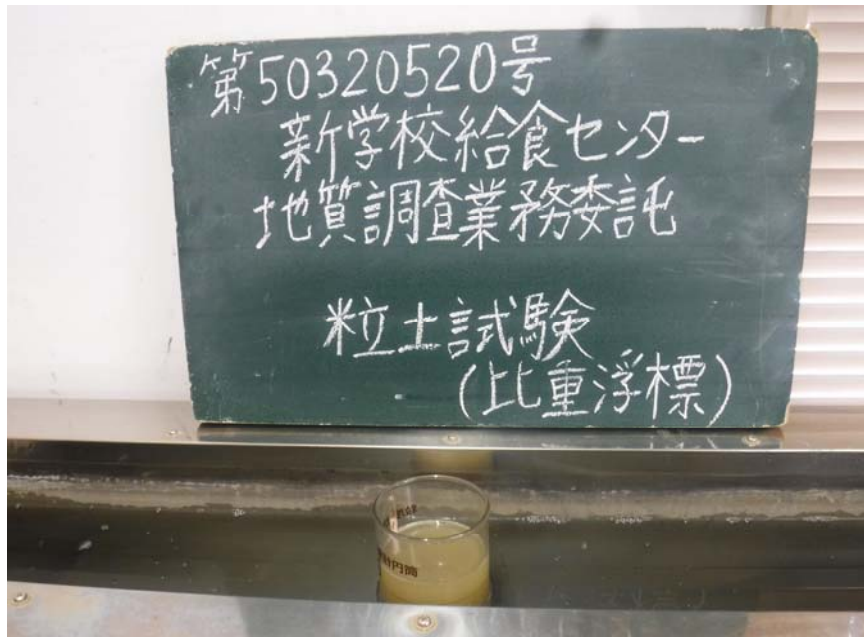 第50320520号
新学校給食センター
地質調査業務委託
粒土試験
(比重浮標)